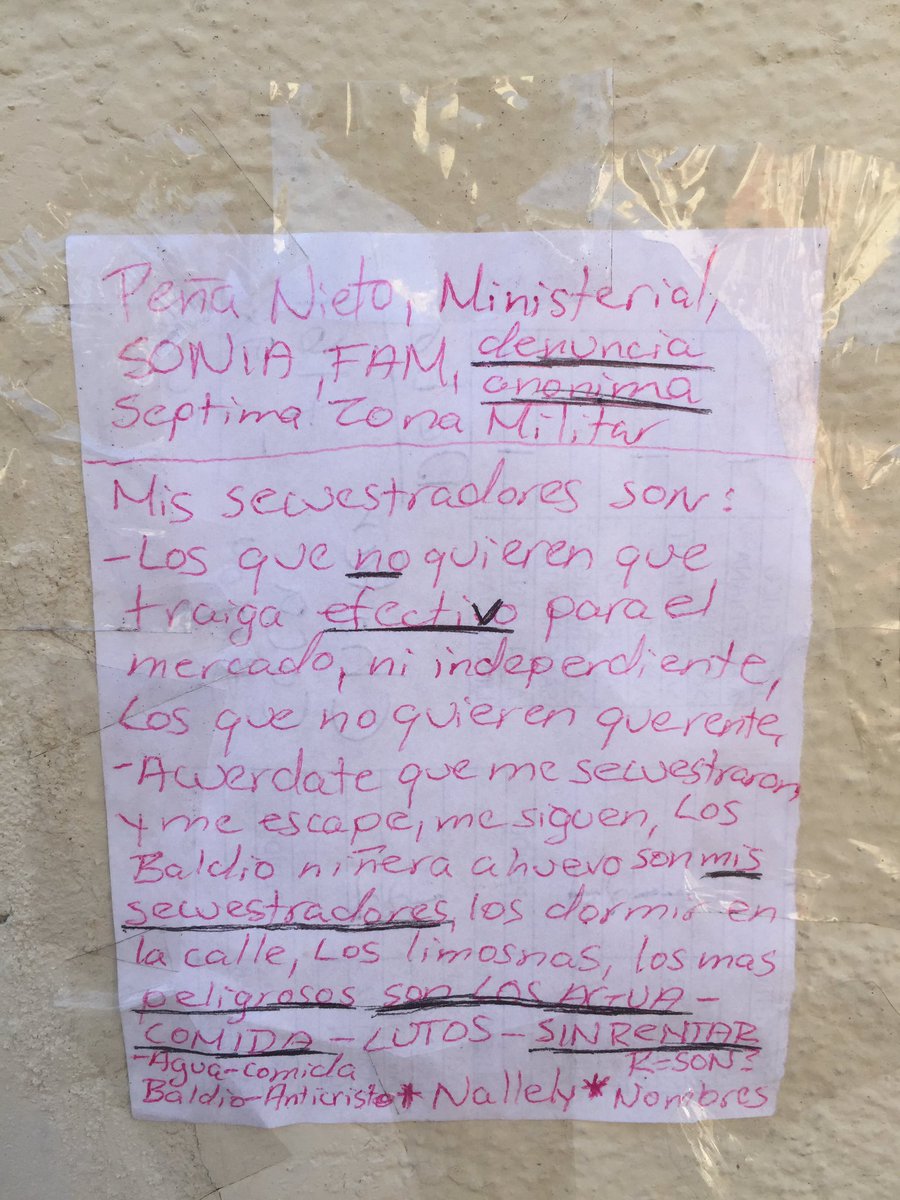 Peña Nieto, Ministerial,
SONIA, FAM, denuncia
anonima
Septima Zona Militar
Mis secuestradores son:
-Los que no quieren que
traiga efectivo para el
mercado, ni independiente,
Los que no quieren querente,
-Acuerdate que me secuestraron,
y me escape, me siguen, Los
Baldio niñera ahuevo son mis
secuestradores, los dormir en
la calle, Los limosnas, los mas
peligrosos son LOS AGUA-
COMIDA-LUTOS-SINRENTAR
-Agua-comida K=SON?
Baldio-Anticristo*Nallely*Nombres